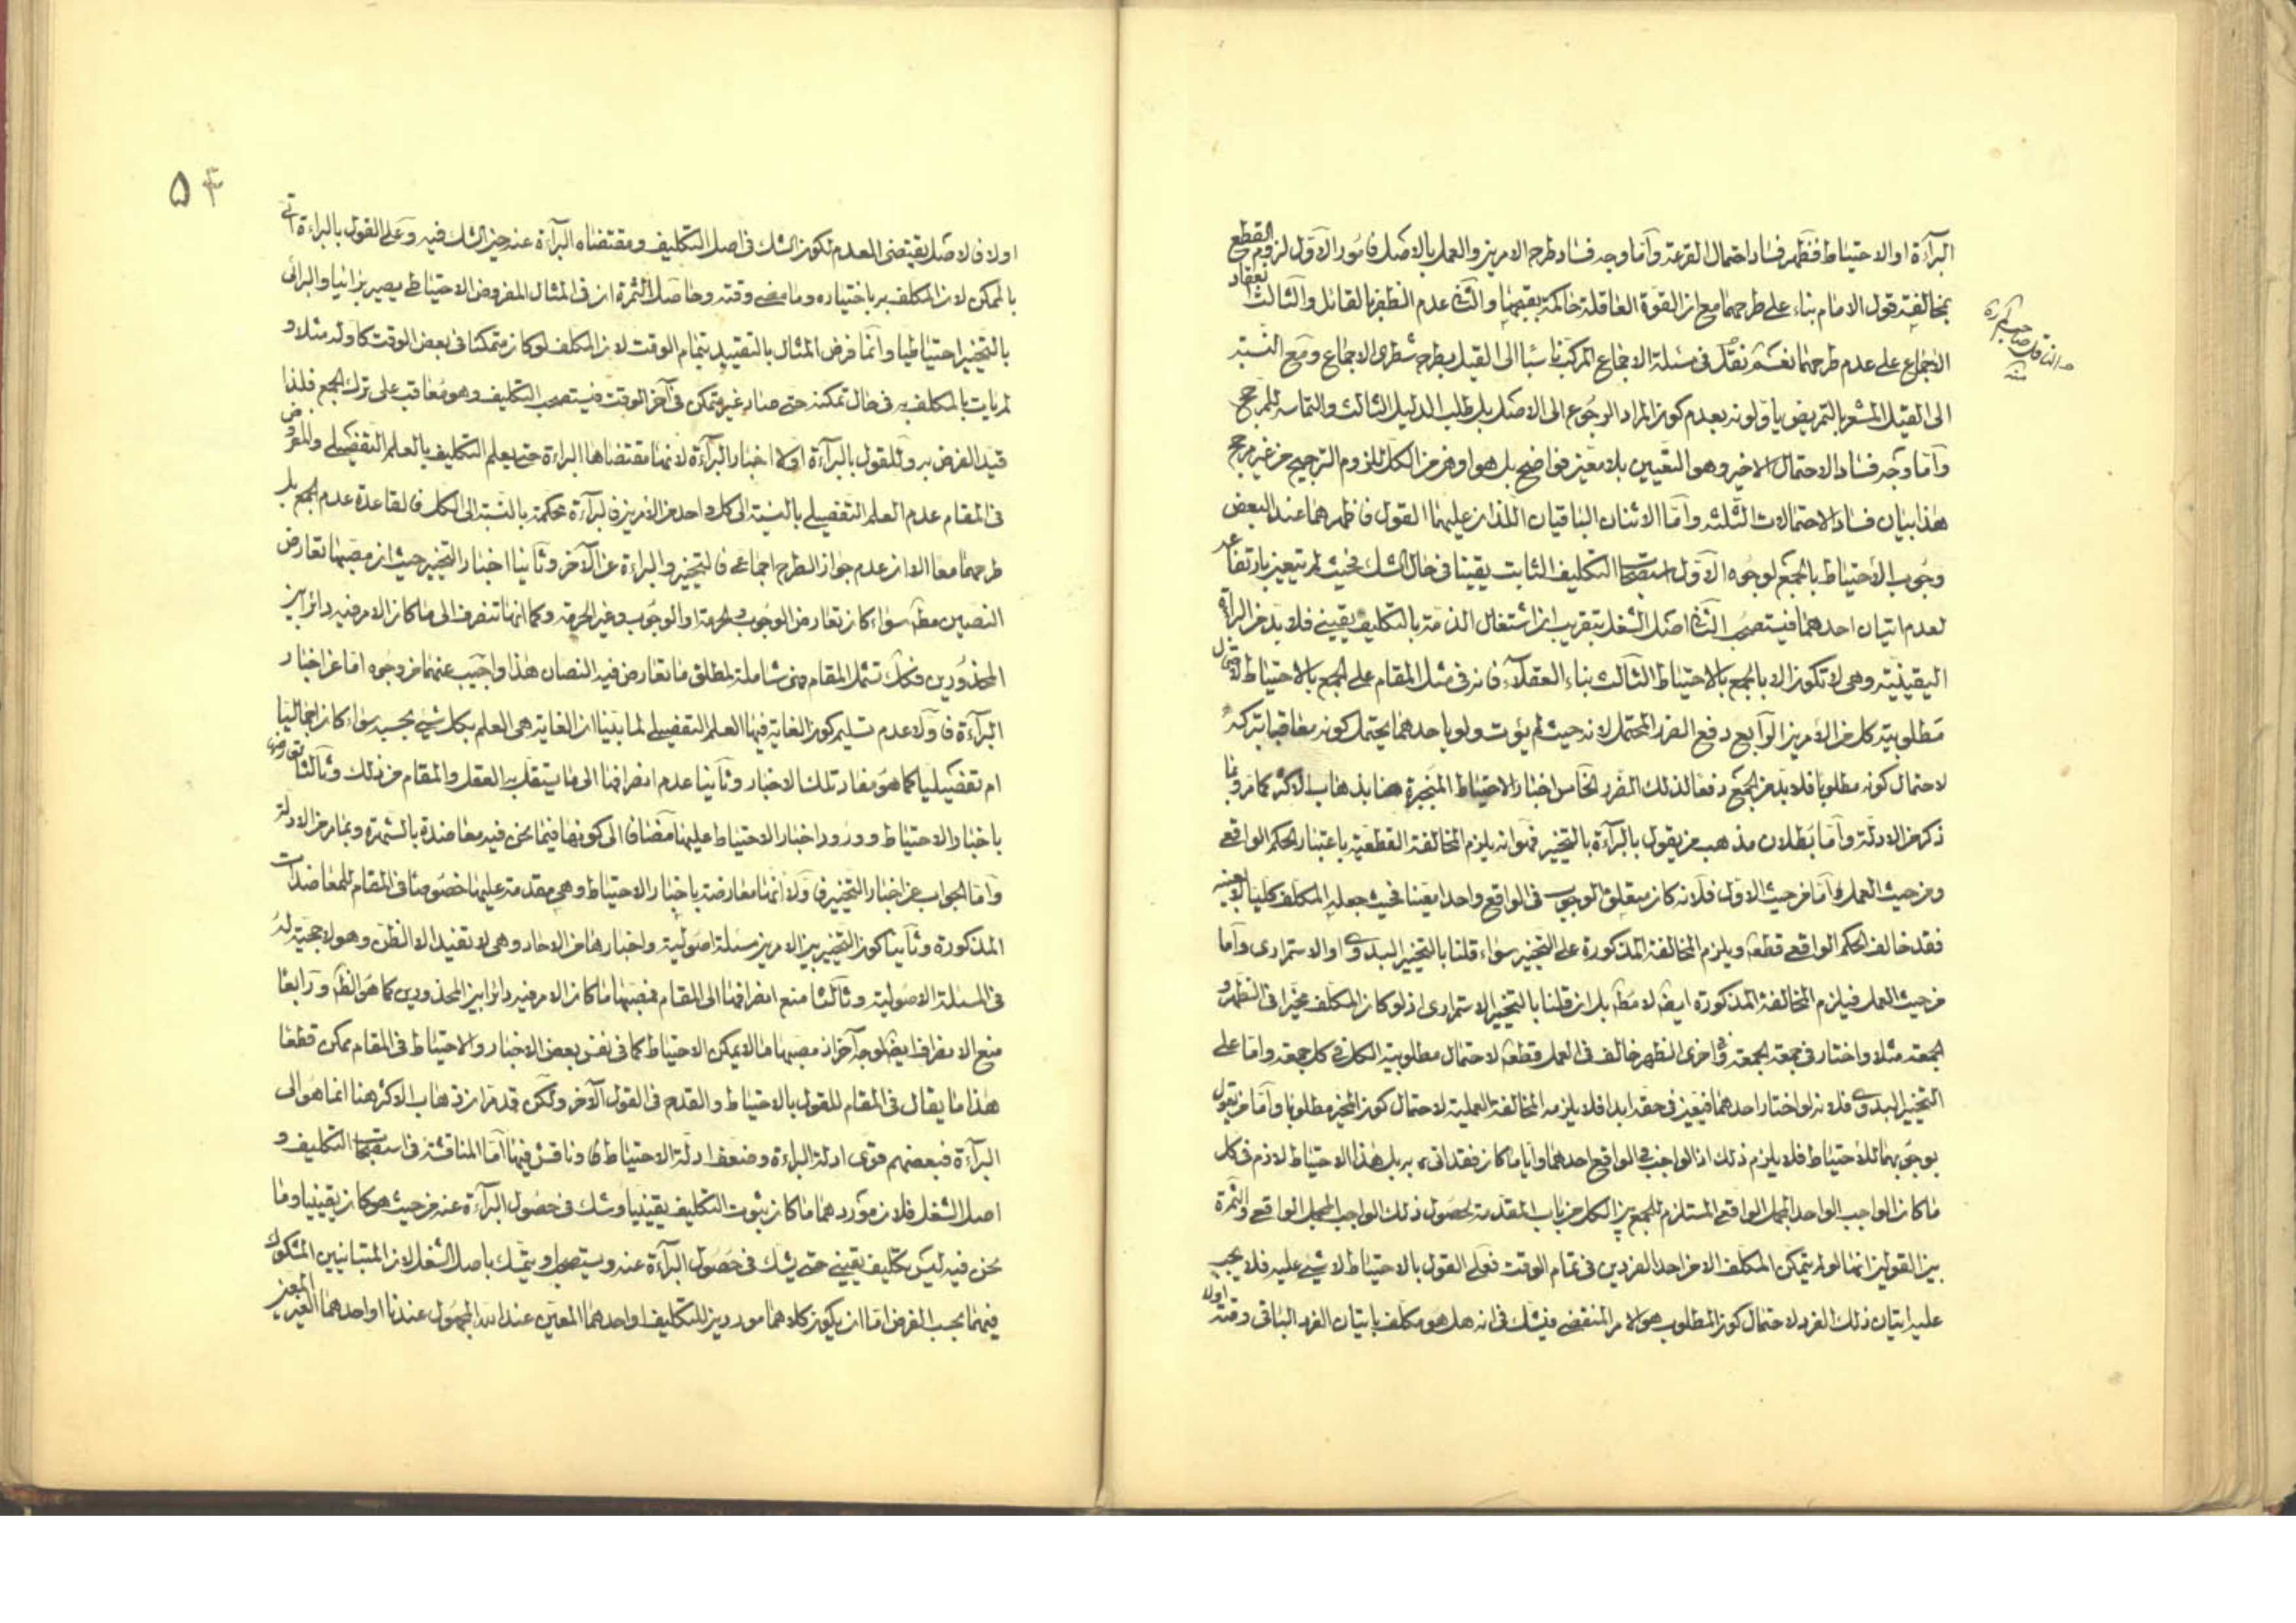 البرآءة او الاحتياط فظهر فساد احتمال القرعة وآما وجه فساد طرح الامرين والعمل بالاصل فامور الآول لزوم القطع
بمخالفة قول الامام بناء على طرحهما مع ان القوة العاقلة حاكمة بقبحها والثاني عدم الظفر بالقائل والثالث انعقاد
الاجماع على عدم طرحهما نعم نقل في مسئلة الاجماع المركب ناسبا الى القيل بطرح شطرى الاجماع ومع النسبة
الى القيل المشعر بالتمريض ياولونه بعدم كون المراد الرجوع الى الاصل بل طلب الدليل الثالث والتماسه للمرجح
وآما وجه فساد الاحتمال الاخير وهو التعيين بلا معين فواضح بل هو اوهن من الكل للزوم الترجيح من غير مرجح
هذا بيان فساد الاحتمالات الثلثه وآما الاثنان الباقيان اللذان عليهما القول فاظهرهما عند البعض
وجوب الاحتياط بالجمع لوجوه الآول استصحاب التكليف الثابت يقينا في حال الشك فحيث لم يتعين بارتفاعه
لعدم اتيان احدهما فيستصحب الثاني اصل الشغل بتقريب ان اشتغال الذمة بالتكليف يقيني فلا بد من البرائة
اليقينية وهي لا تكون الا بالجمع بالاحتياط الثالث بناء العقلآء فانه في مثل المقام على الجمع بالاحتياط لاحتمال
مطلوبية كل من الامرين الرآبع دفع الضرر المحتمل لانه حيث لم يؤت ولو باحدهما يحتمل كونه معاقبا بتركه
لاحتمال كونه مطلوبا فلا بد من الجمع دفعا لذلك الضرر الخامس اخبار الاحتياط المنجبرة هنا بذهاب الاكثر كما مر وبما
ذكر من الادلة وآما بطلان مذهب من يقول بالبرآءة بالتخيير فهو انه يلزم المخالفة القطعية باعتبار الحكم الواقعي
ومن حيث العمل آما من حيث الاول فلانه كان متعلق الوجوب في الواقع واحدا معينا فحيث جعله المكلف كليا لا بعينه
فقد خالف الحكم الواقعي قطعا ويلزم المخالفة المذكورة على التخيير سواء قلنا بالتخيير البدوي او الاستمرارى وآما
من حيث العمل فيلزم المخالفة المذكورة ايضا لا مط بل ان قلنا بالتخيير الاستمرارى اذ لو كان المكلف مخيرا في الظهر و
الجمعة مثلا واختار في جمعة الجمعة وفي اخرى الظهر خالف في العمل قطعا لاحتمال مطلوبية الكل في كل جمعة واما على
التخيير البدوي فلانه لو اختار احدهما فيتعين في حقه ابدا فلا يلزمه المخالفة العملية لاحتمال كون المخير مطلوبا وآما من يقول
بوجوبهما للاحتياط فلا يلزم ذلك اذ الواجب في الواقع احدهما واياما كان فقد اتى به بل هذا الاحتياط لازم في كل
ما كان الواجب الواحد المجمل الواقعي المستلزم للجمع بين الكل من باب المقدمة لحصول ذلك الواجب المجمل الواقعي والثمرة
بين القولين انما لو لم يتمكن المكلف الا من احد الفردين في تمام الوقت فعلى القول بالاحتياط لا شيء عليه فلا يجب
عليه اتيان ذلك الفرد لاحتمال كون المطلوب هو الامر المنقضى فيشك في انه هل هو مكلف باتيان الفرد الباقي وقته اولا
٥٤
اولا فالاصل يقتضى العدم لكون الشك في اصل التكليف ومقتضاه البرآءة عنه حين الشك فيه وعلى القول بالبراءة اتى
بالممكن لان المكلف به باختياره وما مضى وقته وحاصل الثمرة ان في المثال المفروض الاحتياطي يصير برائيا والبرائى
بالتخيير احتياطيا وانما فرض المثال بالتقييد بتمام الوقت لان المكلف لو كان متمكنا في بعض الوقت كاوله مثلا و
لم يات بالمكلف به في حال تمكنه حتى صار غير متمكن في آخر الوقت فيستصحب التكليف وهو معاقب على ترك الجمع فلذا
قيد الفرض به وللقول بالبرآءة اولا اخبار البرآءة لانها مقتضاها البراءة حتى يعلم التكليف بالعلم التفضيلي والمفروض
في المقام عدم العلم التفصيلي بالنسبة الى كل واحد من الامرين فالبرآءة محكمة بالنسبة الى الكل فالقاعدة عدم الجمع بل
طرحهما معا الا ان عدم جواز الطرح اجماعي فالتخيير والبراءة عن الآخر وثانيا اخبار التخيير حيث ان مصبها تعارض
النصين مط سواء كان تعارض الوجوب والحرمة او الوجوب وغير الحرمة وكما انها تنصرف الى ما كان الامر فيه دائرا بين
المحذورين فكك تشمل المقام فهى شاملة لمطلق ما تعارض فيه النصان هذا واجيب عنهما من وجوه اما عن اخبار
البرآءة فاولا عدم تسليم كون الغاية فيها العلم التفصيلي لما بينا ان الغاية هي العلم بكل شيء بحسبه سواء كان اجماليا
ام تفصيليا كما هو مفاد تلك الاخبار وثانيا عدم انصرافها الى ما يستقل به العقل والمقام من ذلك وثالثا تعارضها
باخبار الاحتياط وورود اخبار الاحتياط عليها مضافا الى كونها فيما نحن فيه معاضدة بالشهرة وبما مر من الادلة
وآما الجواب عن اخبار التخيير فاولا انها معارضة باخبار الاحتياط وهي مقدمة عليها خصوصا في المقام للمعاضدات
المذكورة وثانيا كون التخيير بين الامرين مسئلة اصولية واخبارها من الاحاد وهي لا تفيد الا الظن وهو لا حجية له
في المسئلة الاصولية وثالثا منع انصرافها الى المقام فمصبها ما كان الامر فيه دائرا بين المحذورين كما هو الظ ورآبعا
منع الانصراف ايضا لوجه آخر اذ مصبها ما لا يمكن الاحتياط كما في نفس بعض الاخبار والاحتياط في المقام ممكن قطعا
هذا ما يقال في المقام للقول بالاحتياط والقدح في القول الآخر ولكن قد مر ان ذهاب الاكثر هنا انما هو الى
البرآءة فبعضهم قوى ادلة البراءة وضعف ادلة الاحتياط وناقش فيها آما المناقشة في استصحاب التكليف و
اصل الشغل فلان موردهما ما كان ثبوت التكليف يقينيا وشك في حصول البرآءة عنه من حيث هو كان يقينيا وما
نحن فيه ليس بتكليف يقيني حتى يشك في حصول البرآءة عنه ويستصحب او يتمسك باصل الشغل لان المتبائنين المشكوك
فيهما بحسب الفرض اما ان يكون كلاهما موردين للتكليف او احدهما المعين عند الله المجهول عندنا او احدهما الغير المعين